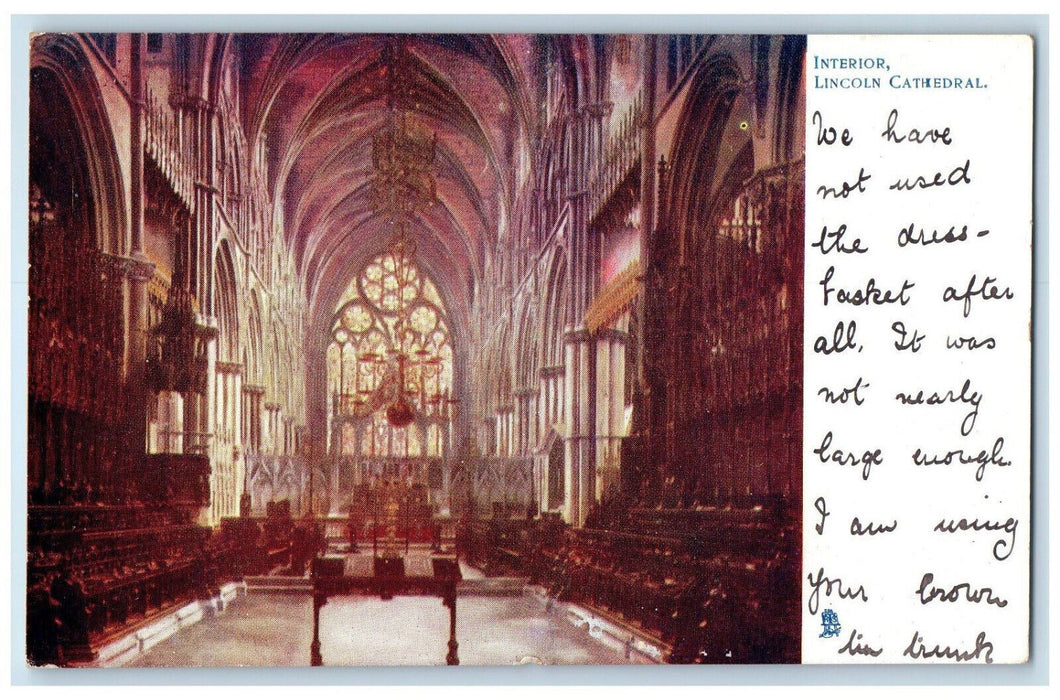 INTERIOR,
LINCOLN CATHEDRAL.
We have
not used
the dress-
basket after
all. It was
not nearly
large enough.
I am using
your brown
tin trunk